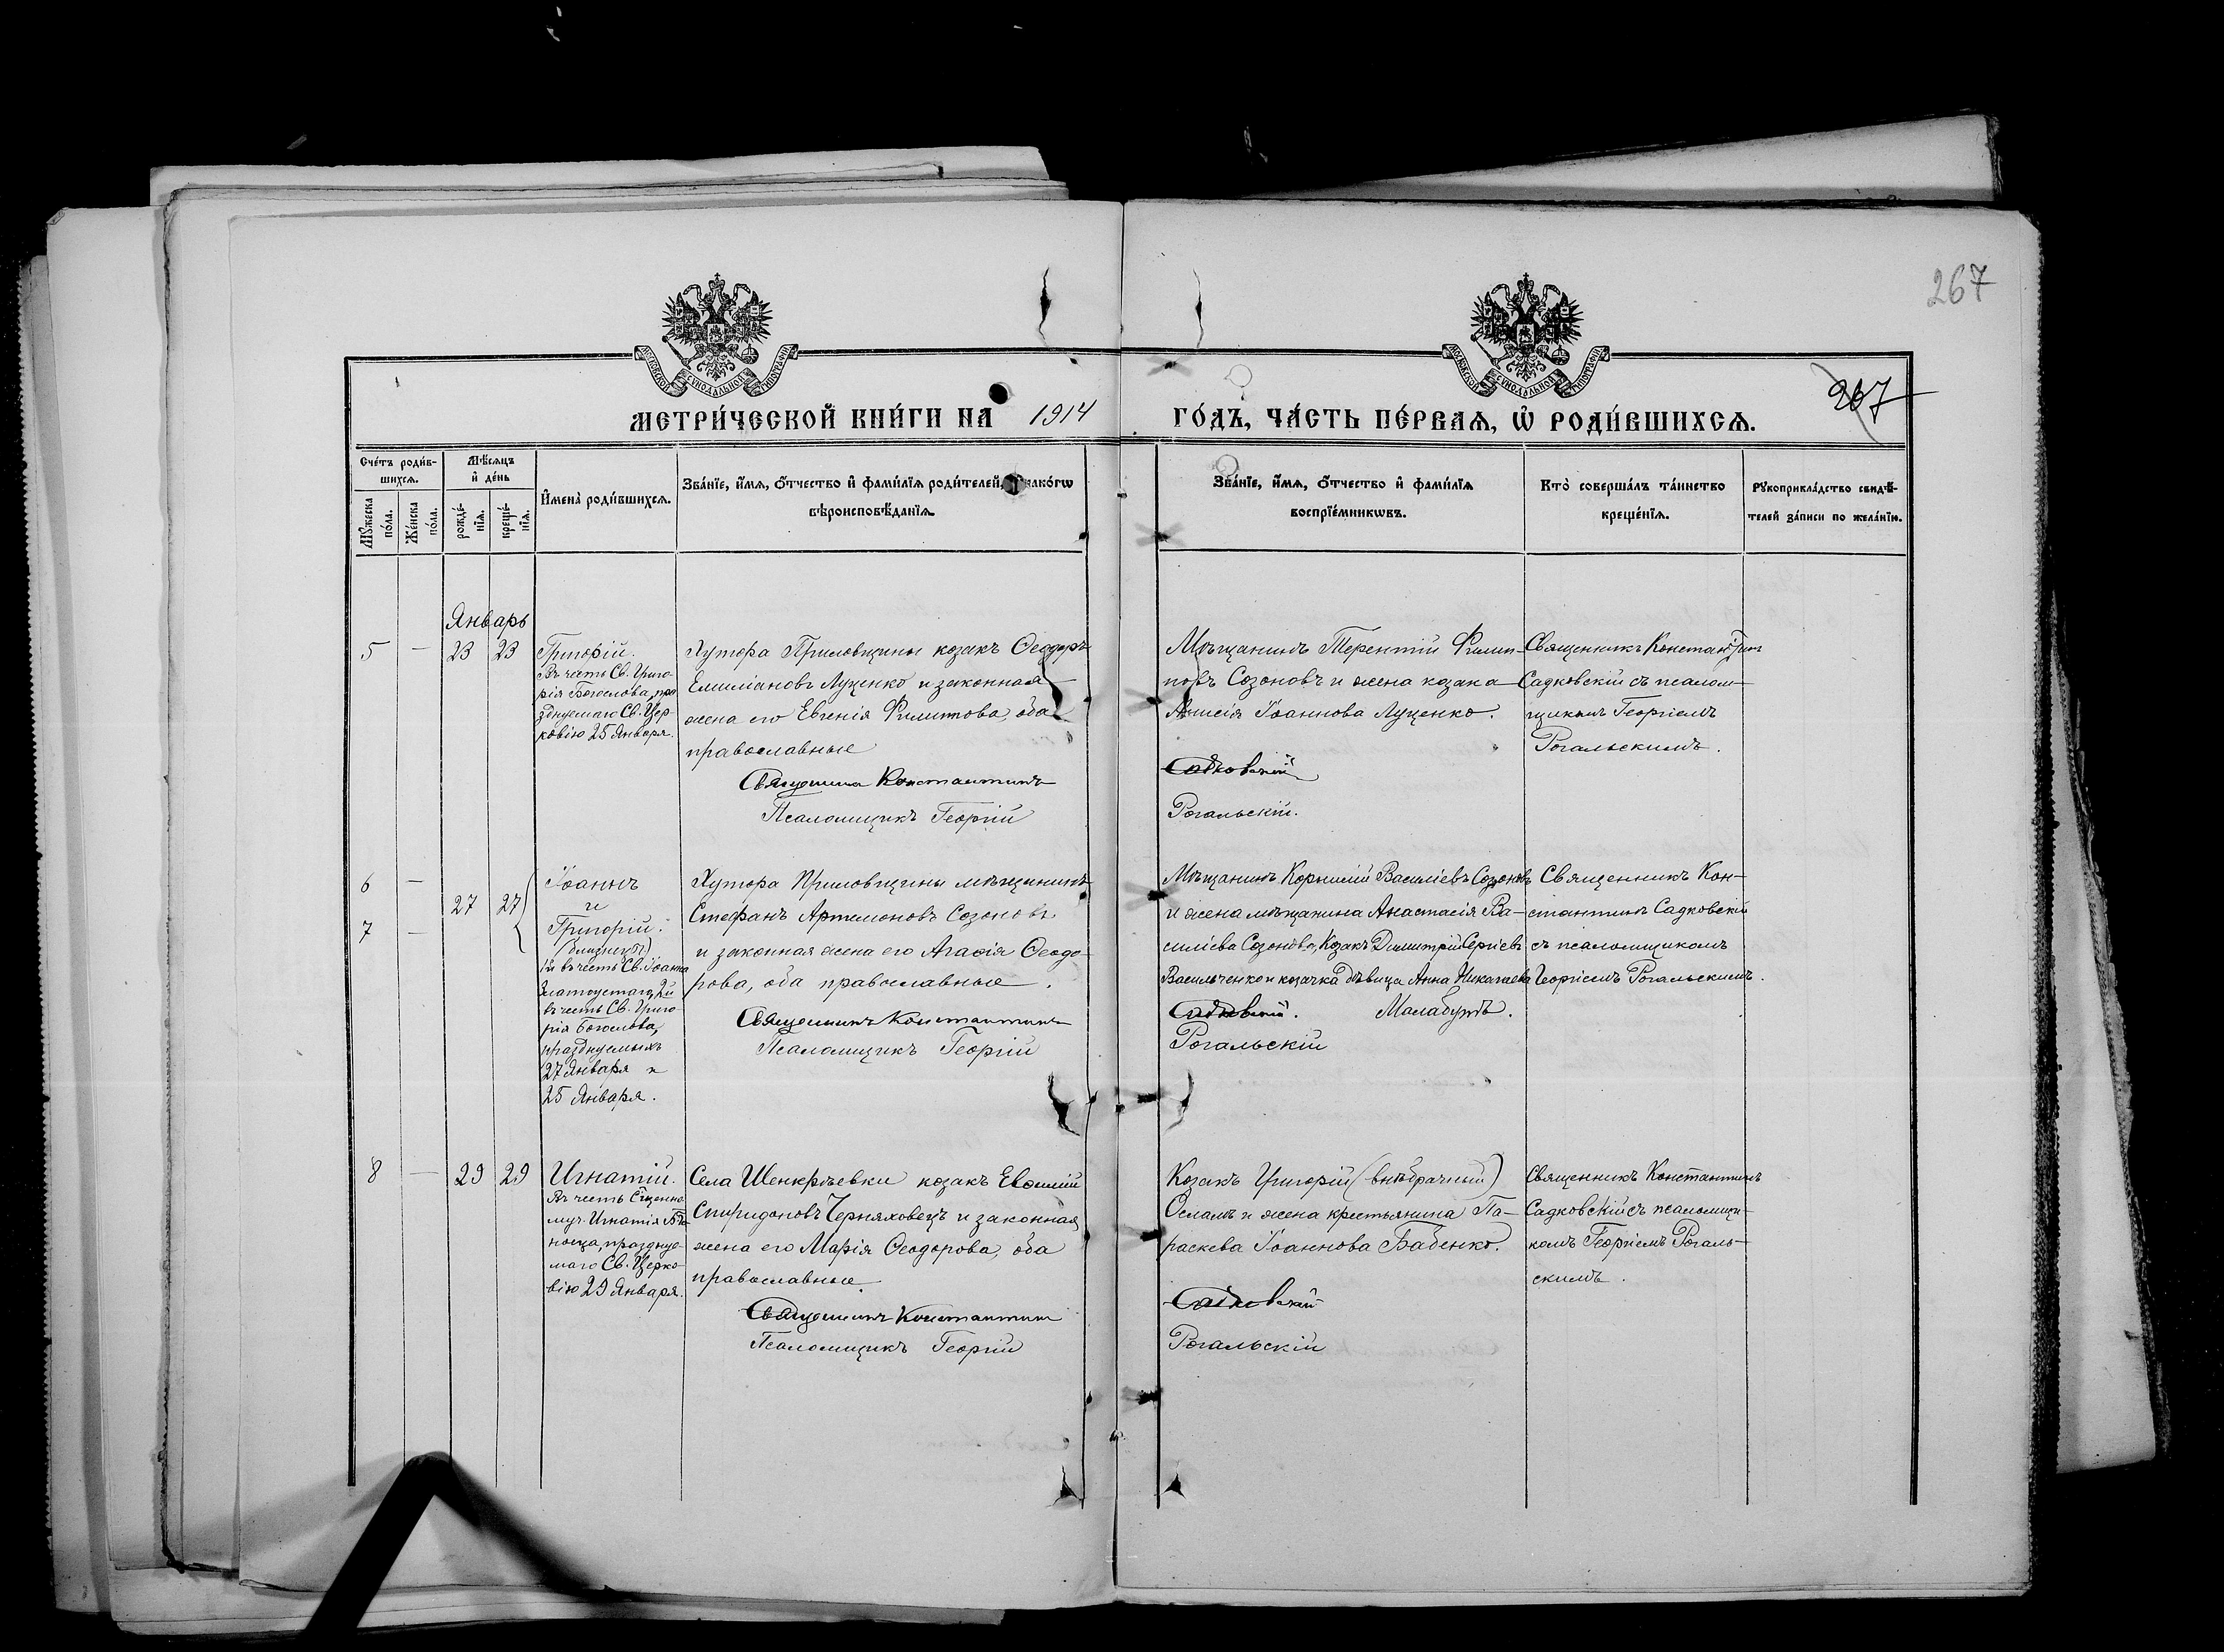 267
МОСКОВСКОЙ СУНОДАЛЬНОЙ ТИПОГРАФІИ
МОСКОВСКОЙ СУНОДАЛЬНОЙ ТИПОГРАФІИ
267
МЕТРИ́ЧЕСКОЙ КНИ́ГИ НА 1914 ГО́ДЪ, ЧА́СТЬ ПЕ́РВАѦ, Ѡ҆ РОДИ́ВШИХСѦ.
Сче́тъ роди́в-
шихсѧ.
Мꙋ́жеска по́ла.
Же́нска по́ла.
Мѣ́сѧцъ
и҆ де́нь
рожде́-
нїѧ.
креще́-
нїѧ.
И҆мена̀ роди́вшихсѧ.
Зва́нїе, и҆́мѧ, ѻ҆́тчество и҆ фами́лїѧ роди́телей, и҆ како́гѡ
вѣроисповѣ́данїѧ.
Зва́нїе, и҆́мѧ, ѻ҆́тчество и҆ фами́лїѧ
воспрїе́мникѡвъ.
Кто̀ соверша́лъ та́инство
креще́нїѧ.
Рꙋкоприкла́дство свидѣ́-
телей за́писи по жела́нїю.
Январь
5 — 23 23
Григорій.
Въ честь Св. Григо-
рія Богослова, пра
зднуемаго Св. Цер-
ковію 25 Января.
Хутора Приловщины козакъ Ѳеодоръ
Емиліановъ Луценко и законная
жена его Евгенія Филиппова, оба
православные
Священникъ Константинъ
Псаломщикъ Георгій
Мѣщанинъ Терентій Филип-
повъ Созоновъ и жена козака
Анисія Іоаннова Луценко.
Садковскій
Рогальскій.
Священникъ Константинъ
Садковскій съ псалом-
щикомъ Георгіемъ
Рогальскимъ.
6 —
7 —
27 27
Іоаннъ
и
Григорій.
(близнецы)
1й въ честь Св. Іоанна
Златоустаго, 2й
въ честь Св. Григо-
рія Богослова,
празднуемыхъ
27 Января и
25 Января.
Хутора Приловщины мѣщанинъ
Стефанъ Артемоновъ Созоновъ
и законная жена его Агаѳія Ѳеодо-
рова, оба православные.
Священникъ Константинъ
Псаломщикъ Георгій
Мѣщанинъ Корнилій Василіевъ Созоновъ
и жена мѣщанина Анастасія Ва-
силіева Созонова, Козакъ Димитрій Сергіевъ
Васильченко и козачка дѣвица Анна Николаева
Садковскій. Малабуга.
Рогальскій
Священникъ Кон-
стантинъ Садковскій
съ псаломщикомъ
Георгіемъ Рогальскимъ.
8 — 29 29
Игнатій.
Въ честь Сщенно
муч. Игнатія Бо-
носца, праздну-
маго Св. Церко-
вію 29 Января.
Села Шенкрѣевки козакъ Евѳимій
Спиридоновъ Черняховецъ и законная
жена его Марія Ѳеодорова, оба
православные
Священникъ Константинъ
Псаломщикъ Георгій
Козакъ Григорій (внѣбрачный)
Осламъ и жена крестьянина Па-
раскева Іоаннова Бабенко.
Садковскій
Рогальскій
Священникъ Константинъ
Садковскій съ псаломщи-
комъ Георгіемъ Рогаль-
скимъ.